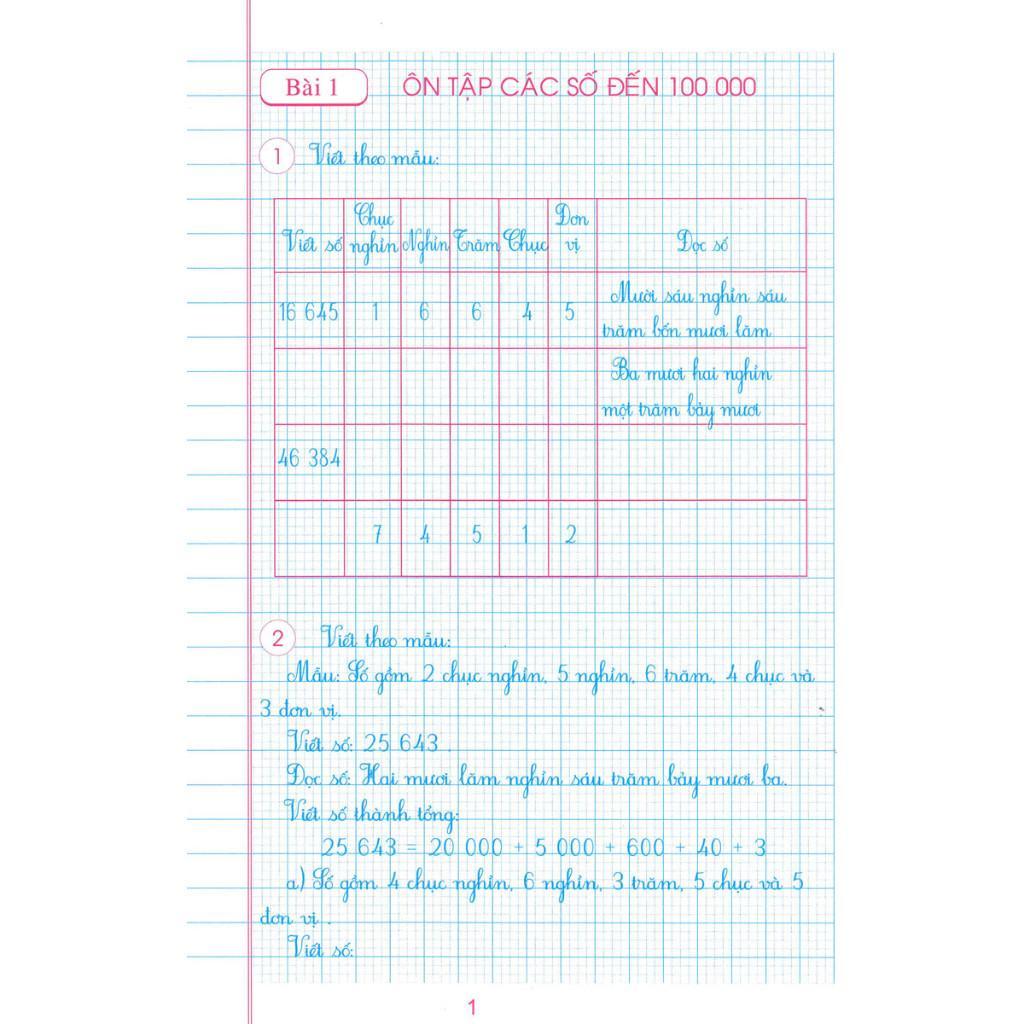 Bài 1 ÔN TẬP CÁC SỐ ĐẾN 100 000
1 Viết theo mẫu:
Viết số Chục nghìn Nghìn Trăm Chục Đơn vị Đọc số
16 645 1 6 6 4 5 Mười sáu nghìn sáu
trăm bốn mươi lăm
Ba mươi hai nghìn
một trăm bảy mươi
46 384
7 4 5 1 2
2 Viết theo mẫu:
Mẫu: Số gồm 2 chục nghìn, 5 nghìn, 6 trăm, 4 chục và
3 đơn vị.
Viết số: 25 643 .
Đọc số: Hai mươi lăm nghìn sáu trăm bảy mươi ba.
Viết số thành tổng:
25 643 = 20 000 + 5 000 + 600 + 40 + 3
a) Số gồm 4 chục nghìn, 6 nghìn, 3 trăm, 5 chục và 5
đơn vị .
Viết số:
1